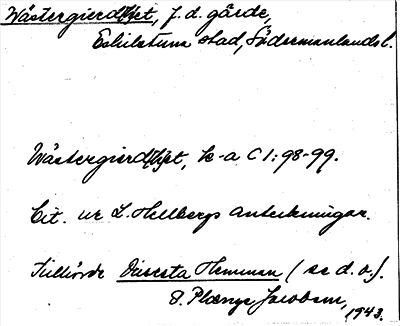 Wästergierdhet, f.d. gärde,
Eskilstuna stad, Södermanlands l.
Wästergierdhet, k-a C 1:98-99.
Cit. ur L. Hellbergs anteckningar.
Tillhörde Diuresta Hemman (se d.o.).
S. Plænge Jacobson,
1943.